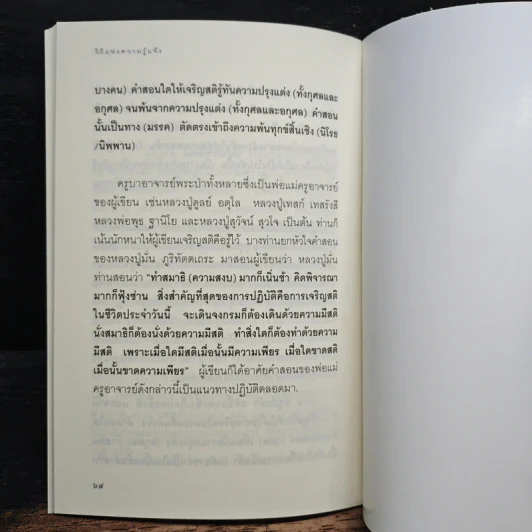 วิถีแห่งความรู้แจ้ง
บางคน) คำสอนใดให้เจริญสติรู้ทันความปรุงแต่ง (ทั้งกุศลและ
อกุศล) จนพ้นจากความปรุงแต่ง (ทั้งกุศลและอกุศล) คำสอน
นั้นเป็นทาง (มรรค) ตัดตรงเข้าถึงความพ้นทุกข์สิ้นเชิง (นิโรธ
/นิพพาน)
ครูบาอาจารย์พระป่าทั้งหลายซึ่งเป็นพ่อแม่ครูอาจารย์
ของผู้เขียน เช่นหลวงปู่ดูลย์ อตุโล หลวงปู่เทสก์ เทสรังสี
หลวงพ่อพุธ ฐานิโย และหลวงปู่สุวัจน์ สุวโจ เป็นต้น ท่านก็
เน้นนักหนาให้ผู้เขียนเจริญสติคือรู้ไว้ บางท่านยกหัวใจคำสอน
ของหลวงปู่มั่น ภูริทัตตเถระ มาสอนผู้เขียนว่า หลวงปู่มั่น
ท่านสอนว่า "ทำสมาธิ (ความสงบ) มากก็เนิ่นช้า คิดพิจารณา
มากก็ฟุ้งซ่าน สิ่งสำคัญที่สุดของการปฏิบัติคือการเจริญสติ
ในชีวิตประจำวันนี้ จะเดินจงกรมก็ต้องเดินด้วยความมีสติ
นั่งสมาธิก็ต้องนั่งด้วยความมีสติ ทำสิ่งใดก็ต้องทำด้วยความ
มีสติ เพราะเมื่อใดมีสติเมื่อนั้นมีความเพียร เมื่อใดขาดสติ
เมื่อนั้นขาดความเพียร" ผู้เขียนก็ได้อาศัยคำสอนของพ่อแม่
ครูอาจารย์ดังกล่าวนี้เป็นแนวทางปฏิบัติตลอดมา.
๖๔